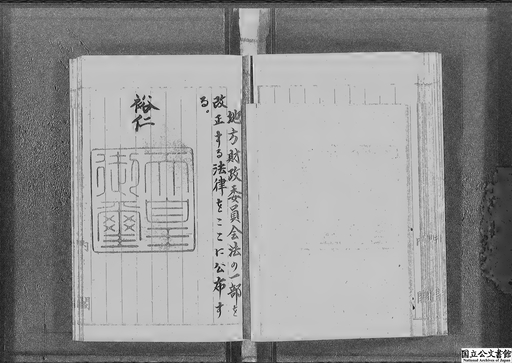 地方財政委員会法の一部を
改正する法律をここに公布す
る。
裕仁
天皇
御璽
国立公文書館
National Archives of Japan